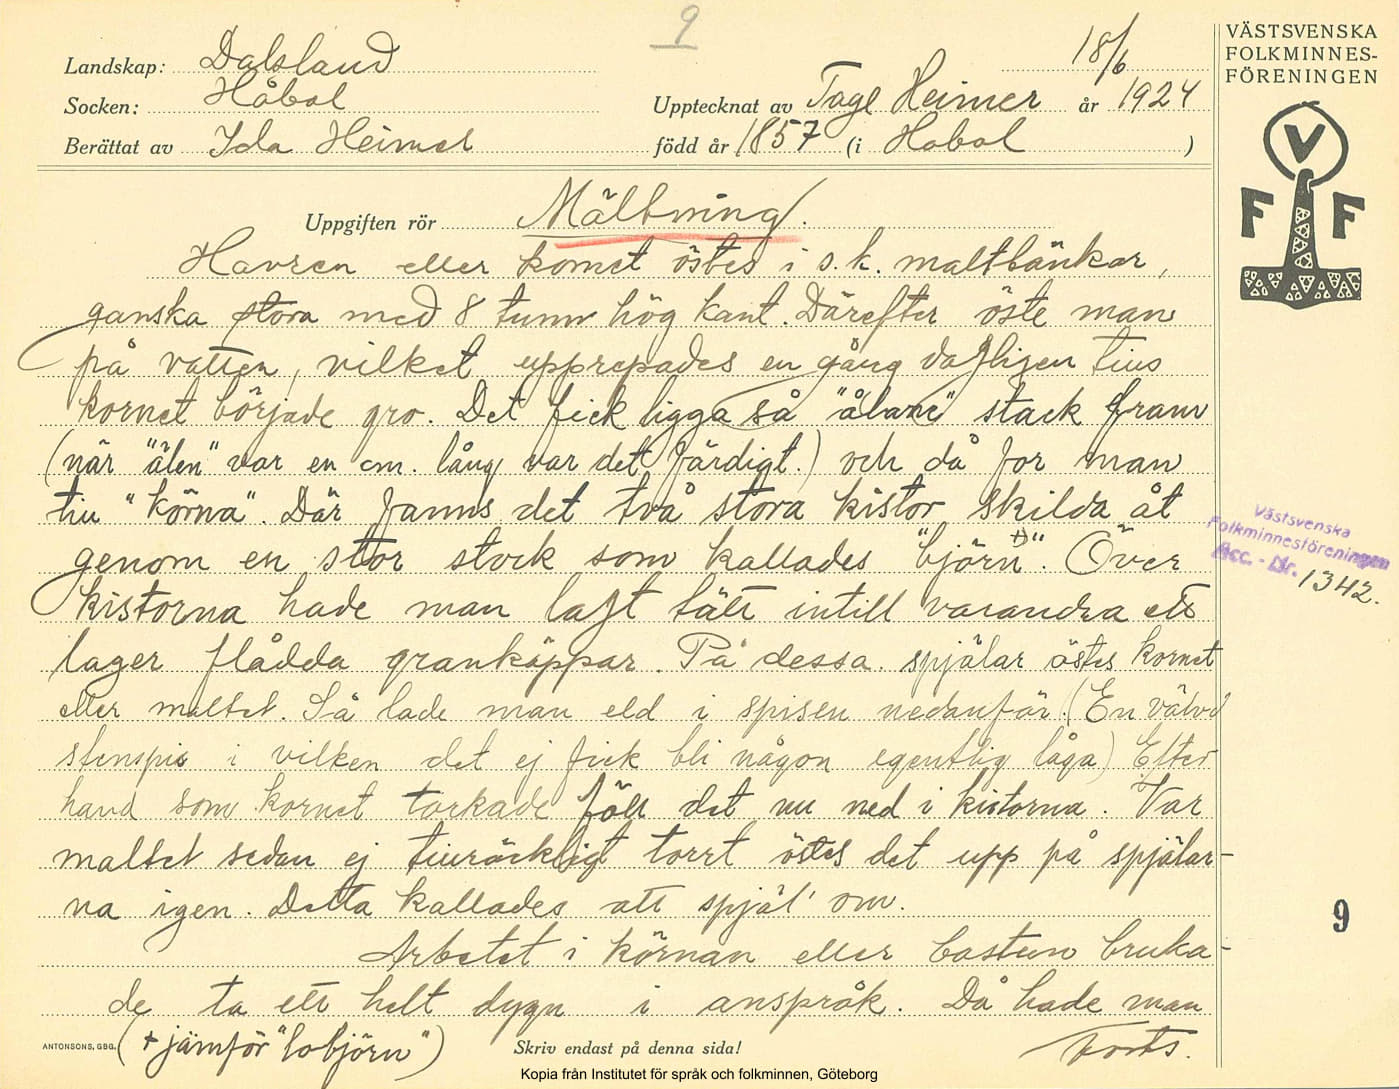 9
18/6
VÄSTSVENSKA
FOLKMINNES-
FÖRENINGEN
Landskap: Dalsland
Socken: Håbol Upptecknat av Tage Heimer år 1924
Berättat av Ida Heimer född år 1857 (i Håbol )
V
F F
Uppgiften rör Mältning.
Havren eller kornet östes i s.k. maltbänkar,
ganska stora med 8 tum hög kant. Därefter öste man
på vatten, vilket upprepades en gång dagligen tills
kornet började gro. Det fick ligga så "ålane" stack fram
(när "ålen" var en cm. lång var det färdigt.) och då for man
till "körna". Där fanns det två stora kistor skilda åt
genom en stor stock som kallades "björn" +). Över
kistorna hade man lagt tätt intill varandra ett
lager flådda grankäppar. På dessa spjälar östes kornet
eller maltet. Så lade man eld i spisen nedanför. (En välvd
stenspis i vilken det ej fick bli någon egentlig låga) Efter
hand som kornet torkade föll det nu ned i kistorna. Var
maltet sedan ej tillräckligt torrt östes det upp på spjälar-
na igen. Detta kallades att spjäl' om.
Arbetet i körnan eller bastun bruka-
de ta ett helt dygn i anspråk. Då hade man
Forts.
(+ jämför "lobjörn")
Västsvenska
Folkminnesföreningen
Acc. - Nr. 1342.
9
ANTONSONS, GBG.
Skriv endast på denna sida!
Kopia från Institutet för språk och folkminnen, Göteborg